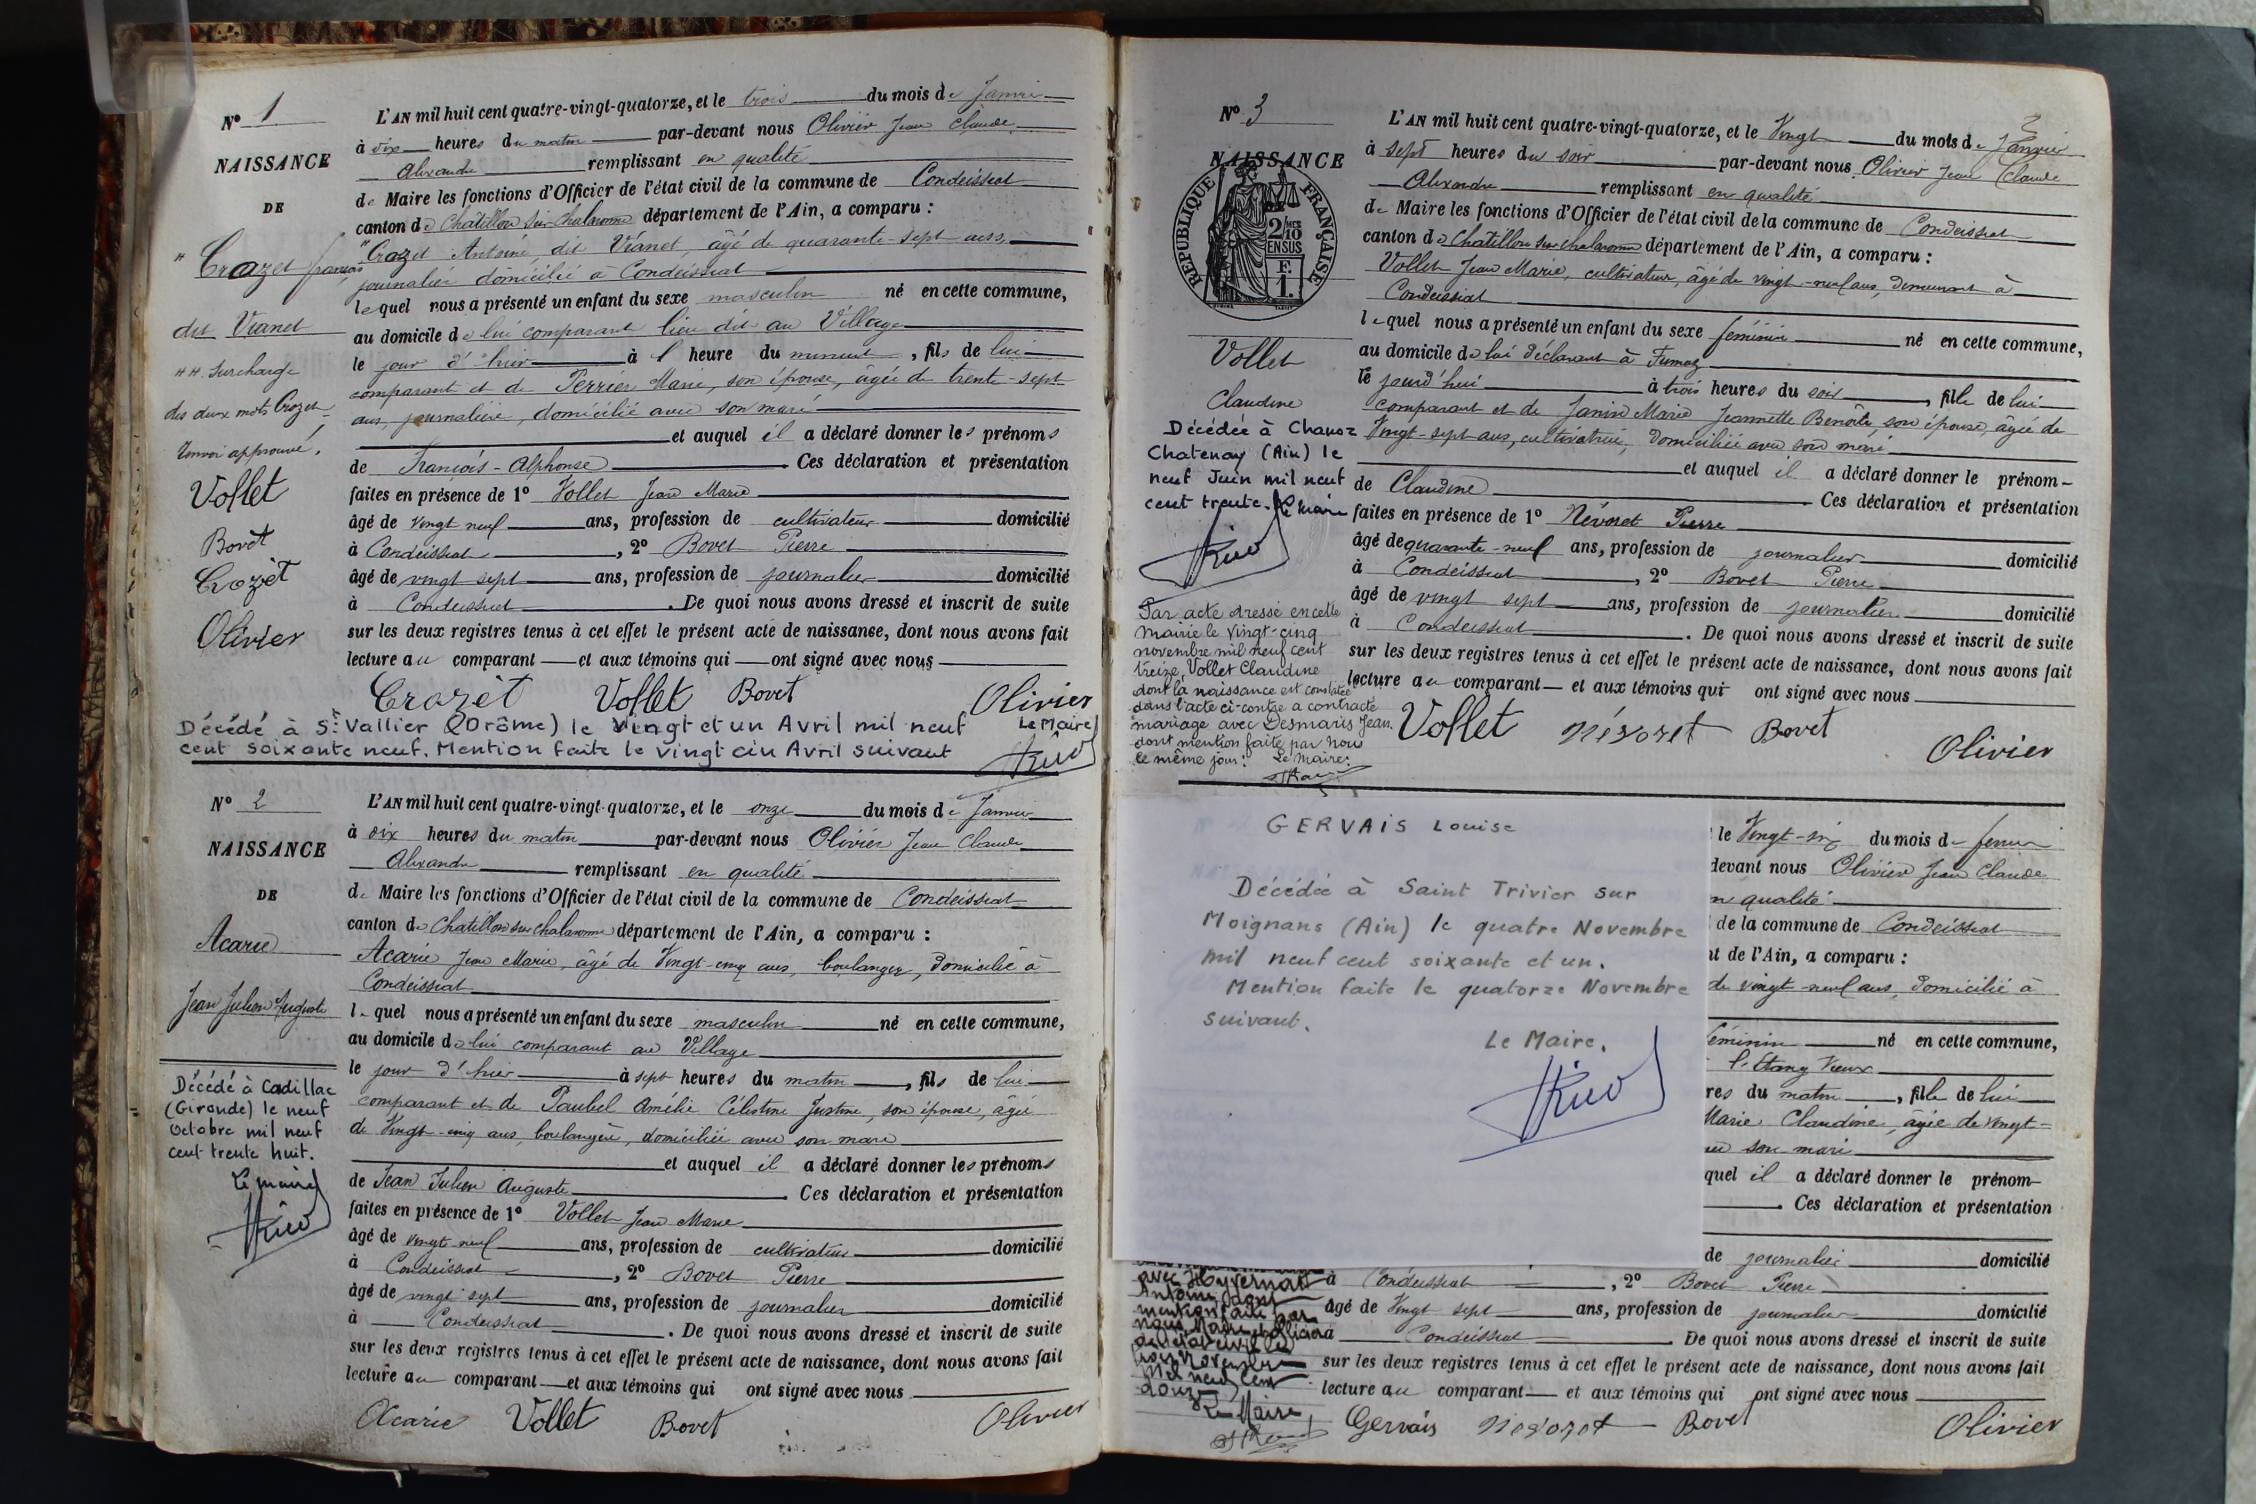 N° 1
NAISSANCE
DE
" Crozet françois
dit Vianet
"" Surcharge
des deux mots Crozet
renvoi approuvé.
Vollet
Bovet
Crozet
Olivier
L'AN mil huit cent quatre-vingt-quatorze, et le trois du mois de Janvier
à dix heures du matin par-devant nous Olivier Jean Claude
Alexandre remplissant en qualité
de Maire les fonctions d'Officier de l'état civil de la commune de Condeissiat
canton de Chatillon sur Chalaronne département de l'Ain, a comparu :
" Crozet Antoine dit Vianet, âgé de quarante-sept ans,
journalier domicilié à Condeissiat
lequel nous a présenté un enfant du sexe masculin né en cette commune,
au domicile de lui comparant lieu dit au Village
le jour d'hier à 1 heure du , fils de lui
comparant et de Perrier Marie, son épouse, âgée de trente-sept
ans, journalière, domicilié avec son mari
et auquel il a déclaré donner les prénoms
de François-Alphonse Ces déclaration et présentation
faites en présence de 1° Vollet Jean Marie
âgé de vingt neuf ans, profession de cultivateur domicilié
à Condeissiat , 2° Bovet Pierre
âgé de vingt sept ans, profession de journalier domicilié
à Condeissiat . De quoi nous avons dressé et inscrit de suite
sur les deux registres tenus à cet effet le présent acte de naissance, dont nous avons fait
lecture au comparant et aux témoins qui ont signé avec nous
Crozet Vollet Bovet Olivier
Décédé à St Vallier (Drôme) le vingt et un Avril mil neuf
cent soixante neuf. Mention faite le vingt cin Avril suivant
Le Maire
N° 2
NAISSANCE
DE
Acarie
Jean Julien Auguste
Décédé à Cadillac
(Gironde) le neuf
octobre mil neuf
cent trente huit.
Le maire
L'AN mil huit cent quatre-vingt-quatorze, et le onze du mois de Janvier
à dix heures du matin par-devant nous Olivier Jean Claude
Alexandre remplissant en qualité
de Maire les fonctions d'Officier de l'état civil de la commune de Condeissiat
canton de Chatillon sur Chalaronne département de l'Ain, a comparu :
Acarie Jean Marie, âgé de Vingt-cinq ans, boulanger, domicilié à
Condeissiat
lequel nous a présenté un enfant du sexe masculin né en cette commune,
au domicile de lui comparant au Village
le jour d'hier à sept heures du matin , fils de lui
comparant et de Paubel Amélie Célestine Justine, son épouse, âgée
de Vingt-cinq ans, boulangère, domiciliée avec son mari
et auquel il a déclaré donner les prénoms
de Jean Julien Auguste Ces déclaration et présentation
faites en présence de 1° Vollet Jean Marie
âgé de vingt-neuf ans, profession de cultivateur domicilié
à Condeissiat , 2° Bovet Pierre
âgé de vingt sept ans, profession de journalier domicilié
à Condeissiat . De quoi nous avons dressé et inscrit de suite
sur les deux registres tenus à cet effet le présent acte de naissance, dont nous avons fait
lecture au comparant et aux témoins qui ont signé avec nous
Acarie Vollet Bovet Olivier
3
N° 3
NAISSANCE
RÉPUBLIQUE FRANÇAISE
2/10 MES
EN SUS
F.
1.
Vollet
Claudine
Décédée à Chanoz
Chatenay (Ain) le
neuf Juin mil neuf
cent trente. Le maire
Par acte dressé en cette
mairie le vingt-cinq
novembre mil neuf cent
treize, Vollet Claudine
dont la naissance est constatée
dans l'acte ci-contre a contracté
mariage avec Desmaris Jean,
dont mention faite par nous
le même jour: Le Maire:
L'AN mil huit cent quatre-vingt-quatorze, et le Vingt du mois de Janvier
à sept heures du soir par-devant nous Olivier Jean Claude
Alexandre remplissant en qualité
de Maire les fonctions d'Officier de l'état civil de la commune de Condeissiat
canton de Chatillon sur Chalaronne département de l'Ain, a comparu :
Vollet Jean Marie, cultivateur, âgé de vingt-neuf ans, demeurant à
Condeissiat
lequel nous a présenté un enfant du sexe féminin né en cette commune,
au domicile de lui déclarant à Fumoz
le jourd'hui à trois heures du soir , fille de lui
comparant et de Janin Marie Jeannette Benoîte, son épouse, âgée de
Vingt-sept ans, cultivatrice, domiciliée avec son mari
et auquel il a déclaré donner le prénom
de Claudine Ces déclaration et présentation
faites en présence de 1° Névoret Pierre
âgé de quarante-neuf ans, profession de journalier domicilié
à Condeissiat , 2° Bovet Pierre
âgé de vingt sept ans, profession de journalier domicilié
à Condeissiat . De quoi nous avons dressé et inscrit de suite
sur les deux registres tenus à cet effet le présent acte de naissance, dont nous avons fait
lecture au comparant et aux témoins qui ont signé avec nous
Vollet Névoret Bovet Olivier
GERVAIS Louise
Décédée à Saint Trivier sur
Moignans (Ain) le quatre Novembre
mil neuf cent soixante et un.
Mention faite le quatorze Novembre
suivant.
Le Maire.
le Vingt-six du mois de février
devant nous Olivier Jean Claude
en qualité
de la commune de Condeissiat
nt de l'Ain, a comparu :
de vingt-neuf ans, domicilié à
féminin né en cette commune,
l'Etang Vieux
res du matin , fille de lui
Marie Claudine, âgée de vingt-
son mari
quel il a déclaré donner le prénom
Ces déclaration et présentation
de journalier domicilié
à Condeissiat , 2° Bovet Pierre
âgé de Vingt sept ans, profession de journalier domicilié
à Condeissiat De quoi nous avons dressé et inscrit de suite
sur les deux registres tenus à cet effet le présent acte de naissance, dont nous avons fait
lecture au comparant et aux témoins qui ont signé avec nous
avec Hyvernat
Antoine, dont
mention faite par
nous, Maire et officier
de l'état civil le
novembre
mil neuf cent
douze
Le Maire,
Gervais Névoret Bovet Olivier